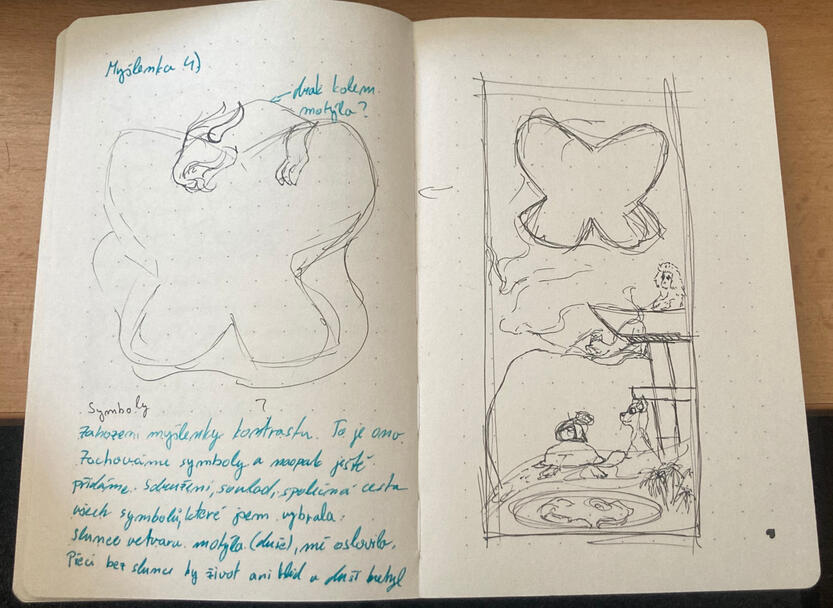 Myšlenka 4)
drak kolem
motýla?
Symboly
?
Zahození myšlenky kontrastu. To je ono.
Zachováme symboly a naopak ještě
přidáme. Sdružení, soulad, společná cesta
všech symbolů, které jsem vybrala.
slunce ve tvaru motýla (duše), mě oslovilo.
Přeci bez slunce by život ani klid a duší nebyl